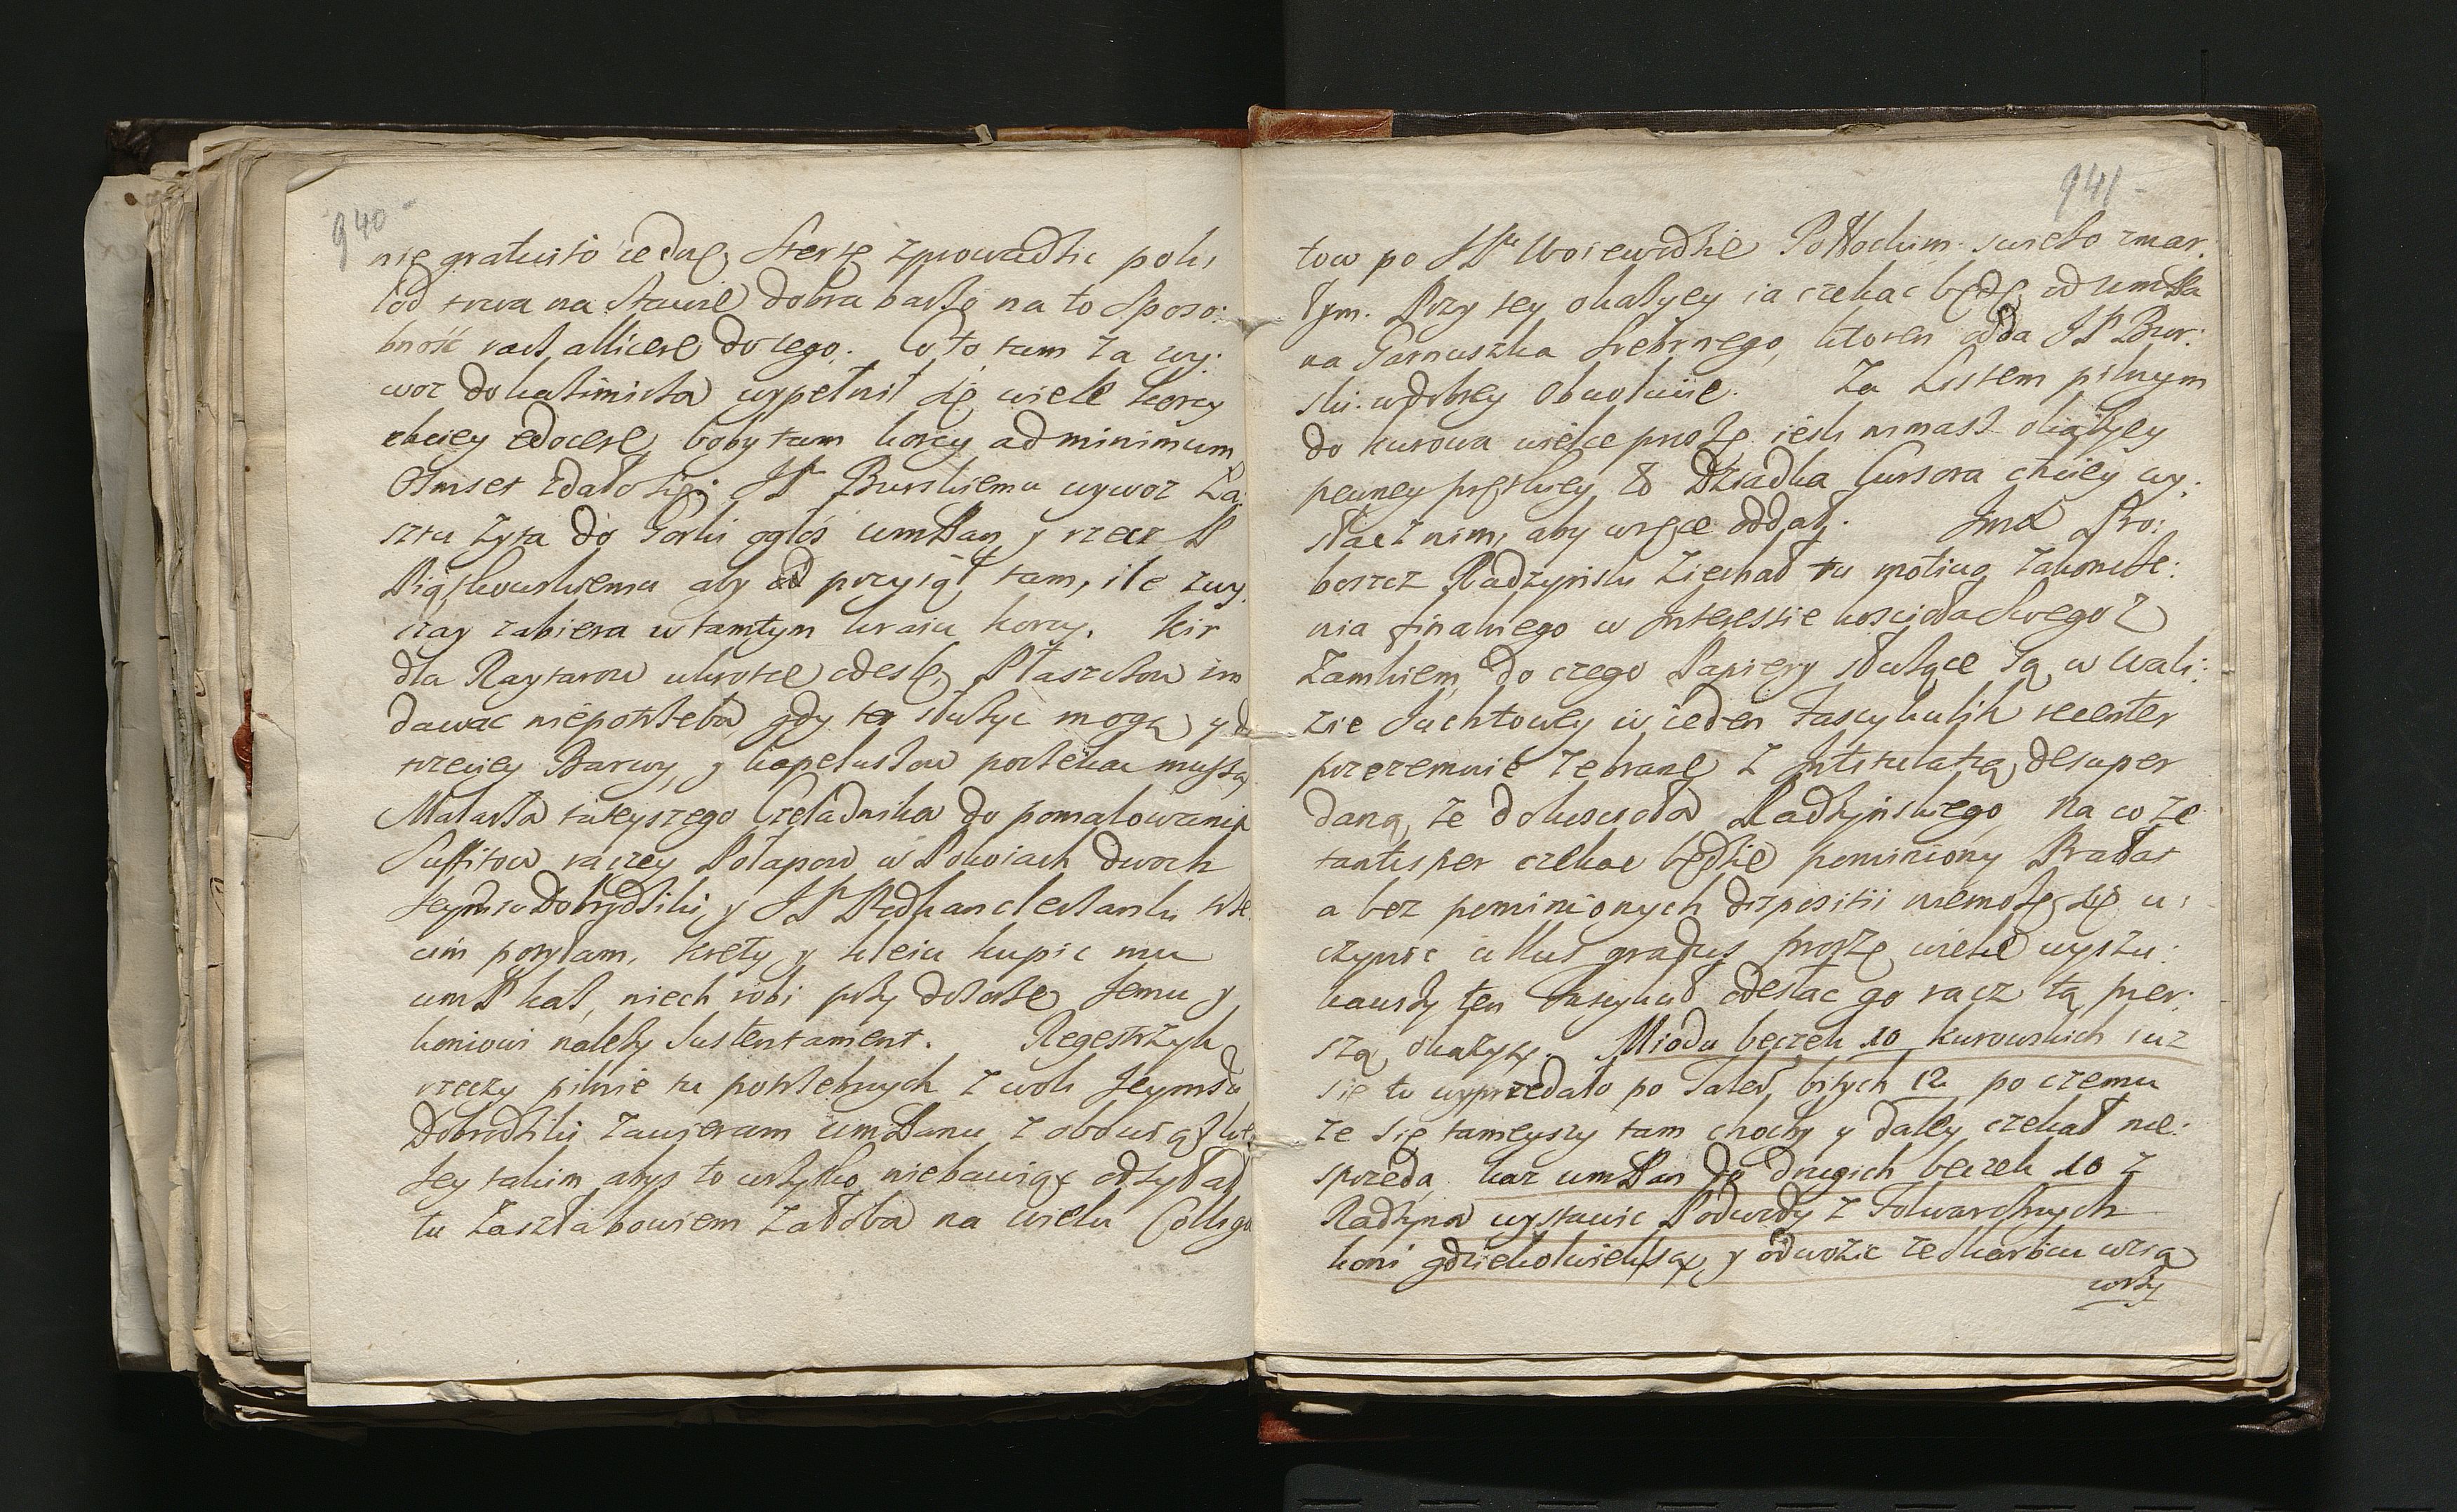 940
nie gratuito jednę Stertę zprowadzic poki
lód trwa na Stawie dobra barzo na to sposo:
bność racz allicere do tego. Co to tam za wy:
woz do Kazimirza wypełnił się wiele korcy
chciey edocere, boby tam korcy ad minimum
Osmset zdało się. JP Burskiemu wywoz Ła:
sztu Zyta do Gorki ogłoś UmPan y rzecz P
Piąskowskiemu aby przyiął tam, ile zwy
czay zabiera w tamtym kraiu korcy. Kir
dla Raytarow wkrotce odeslę, Płaszczow im
dawac niepotrzeba gdy te służyc mogą y do
trzeciey Barwy, y kapeluszow poczekac muszą
Malarza tuteyszego Czeladnika do pomalowania
Suffitow raczey Połapow w Pokoiach dwoch
Jeymsci Dobrodziki y JP Podkanclerzanki
posyłam, krety y kleiu kupic mu
umP każ, niech robi przy dozorze Jemu y
koniowi należy Sustentament. Regestrzyk
rzeczy pilnie tu potrzebnych z woli Jeymsci
Dobrodziki zawieram UmPanu z obowiązkiem
Jey takim abys to wszytko niebawiąc odsyłał
tu zaszła bowiem Załoba na wielu Colliga
941
tow po JP Woiewodzie Połłockim swieżo zmar:
łym. Przy tey okazyey ia czekac będę od UmPa
na Garnuszka srebrnego, ktoren odda JP Bur:
ski w dobrey Obwolucie. Za Listem pilnym
do Kurowa wielce proszę iesli nimasz okazyey
pewney prętkiey, to Dziadka Cursora chciey wy:
słac z nim, aby w ręce oddał. Jmć Pro:
boszcz Radzynski ziechał tu motivo zakoncze:
nia finalnego w Interessie koscioła Swego z
Zamkiem, do czego Papiery służące są w Wali:
zie Juchtowey w ieden Fascykulik recenter
przezemnie zebrane z Intitulatią desuper
daną, ze do koscioła Radzynskiego, na co ze
tantisper czekac będzie pominiony Prałat
a bez pominionych dispositii niemoże się u:
czynic ullus gradus, proszę wielce wyszu:
kawszy ten Fascykuł odesłac go racz tą pier:
szą okazyą. Miodu beczek 10 Kurowskich iuz
sie tu wyprzedało po Taler bitych 12 po czemu
ze się tameyszy tam chocby y daley czekał nie:
sprzeda, kaz UmPan do drugich beczek 10 z
Radzyna wystawic Podwody z Folwarcznych
koni gdziekolwiek są, y odwozic ze skarbcu wzią
wszy